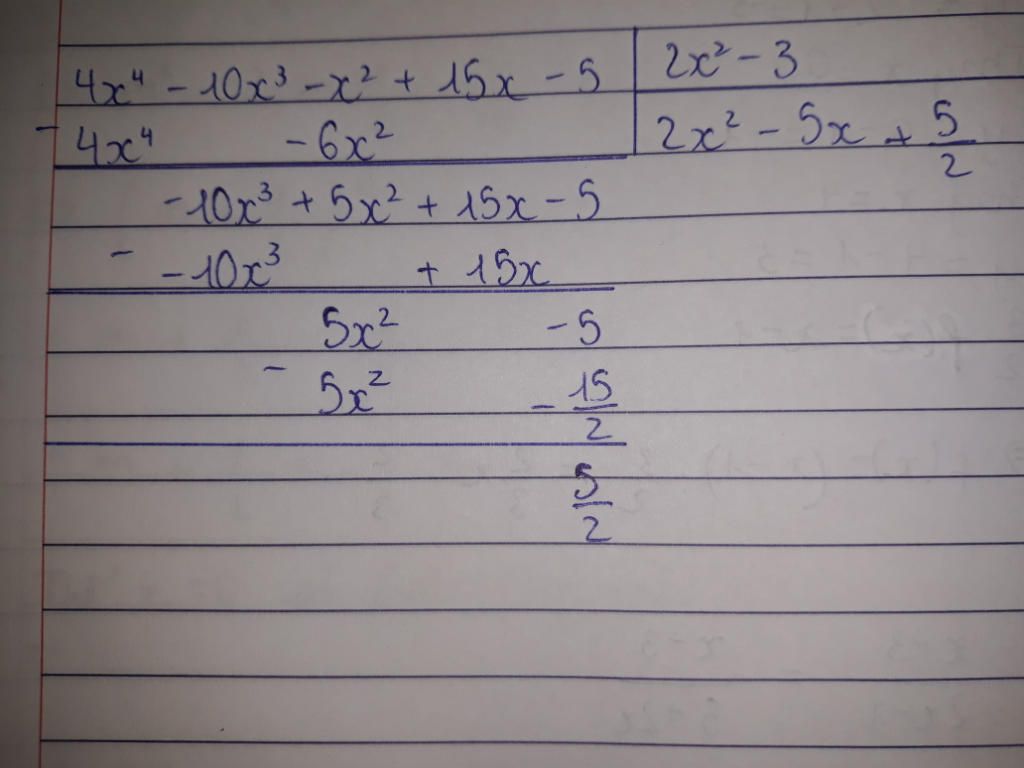 4x⁴ - 10x³ - x² + 15x - 5 | 2x² - 3
- 4x⁴ - 6x² | 2x² - 5x + 5/2
-10x³ + 5x² + 15x - 5
- -10x³ + 15x
5x² - 5
- 5x² - 15/2
5/2